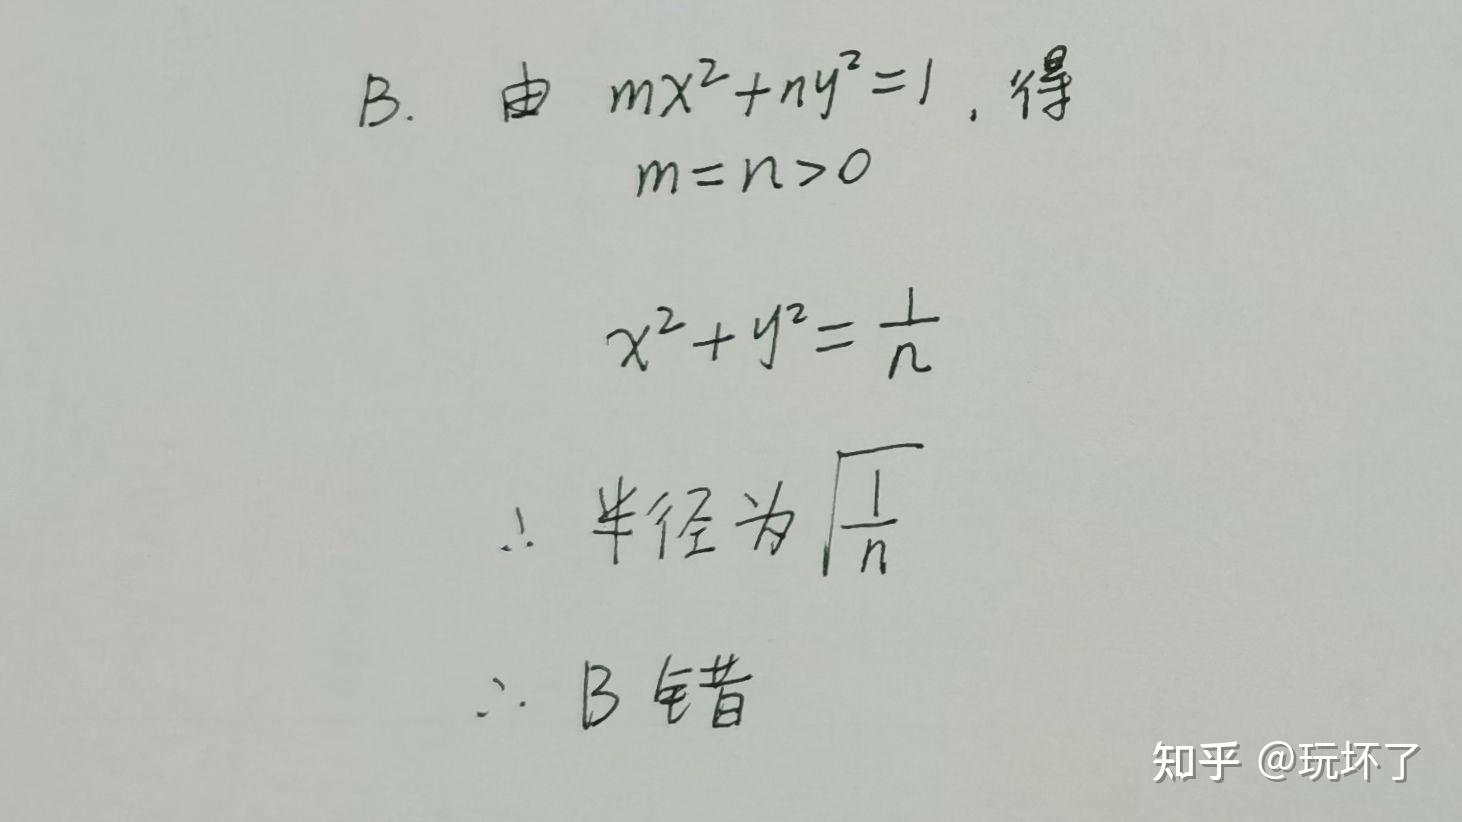 B. 由 mx²+ny²=1, 得
m=n>0
x²+y²=1/n
∴ 半径为√(1/n)
∴ B 错
知乎 @玩坏了